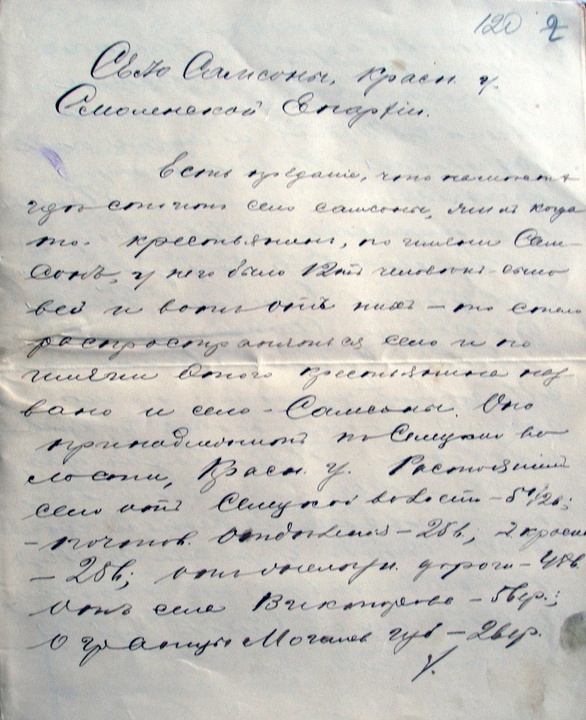 120 2
Село Самсоны, Красн. у.
Смоленской Епархіи.
Есть преданіе, что на мѣстѣ
гдѣ стоитъ село Самсоны, жилъ когда
то крестьянинъ, по имени Сам-
сонъ, у него было 12ть человѣкъ сыно
вей и вотъ отъ нихъ – то стало
распространяться село и по
имени этого крестьянина наз
вано и село - Самсоны. Оно
принадлежитъ къ во
лости, Красн. у. Разстояніе
село отъ Селецкой волости – 5 1/2 в;
- 25в;
– 25в; отъ дороги –
отъ села Викторово – 5 вер.;
о границы Могилев губ – 2 вер.